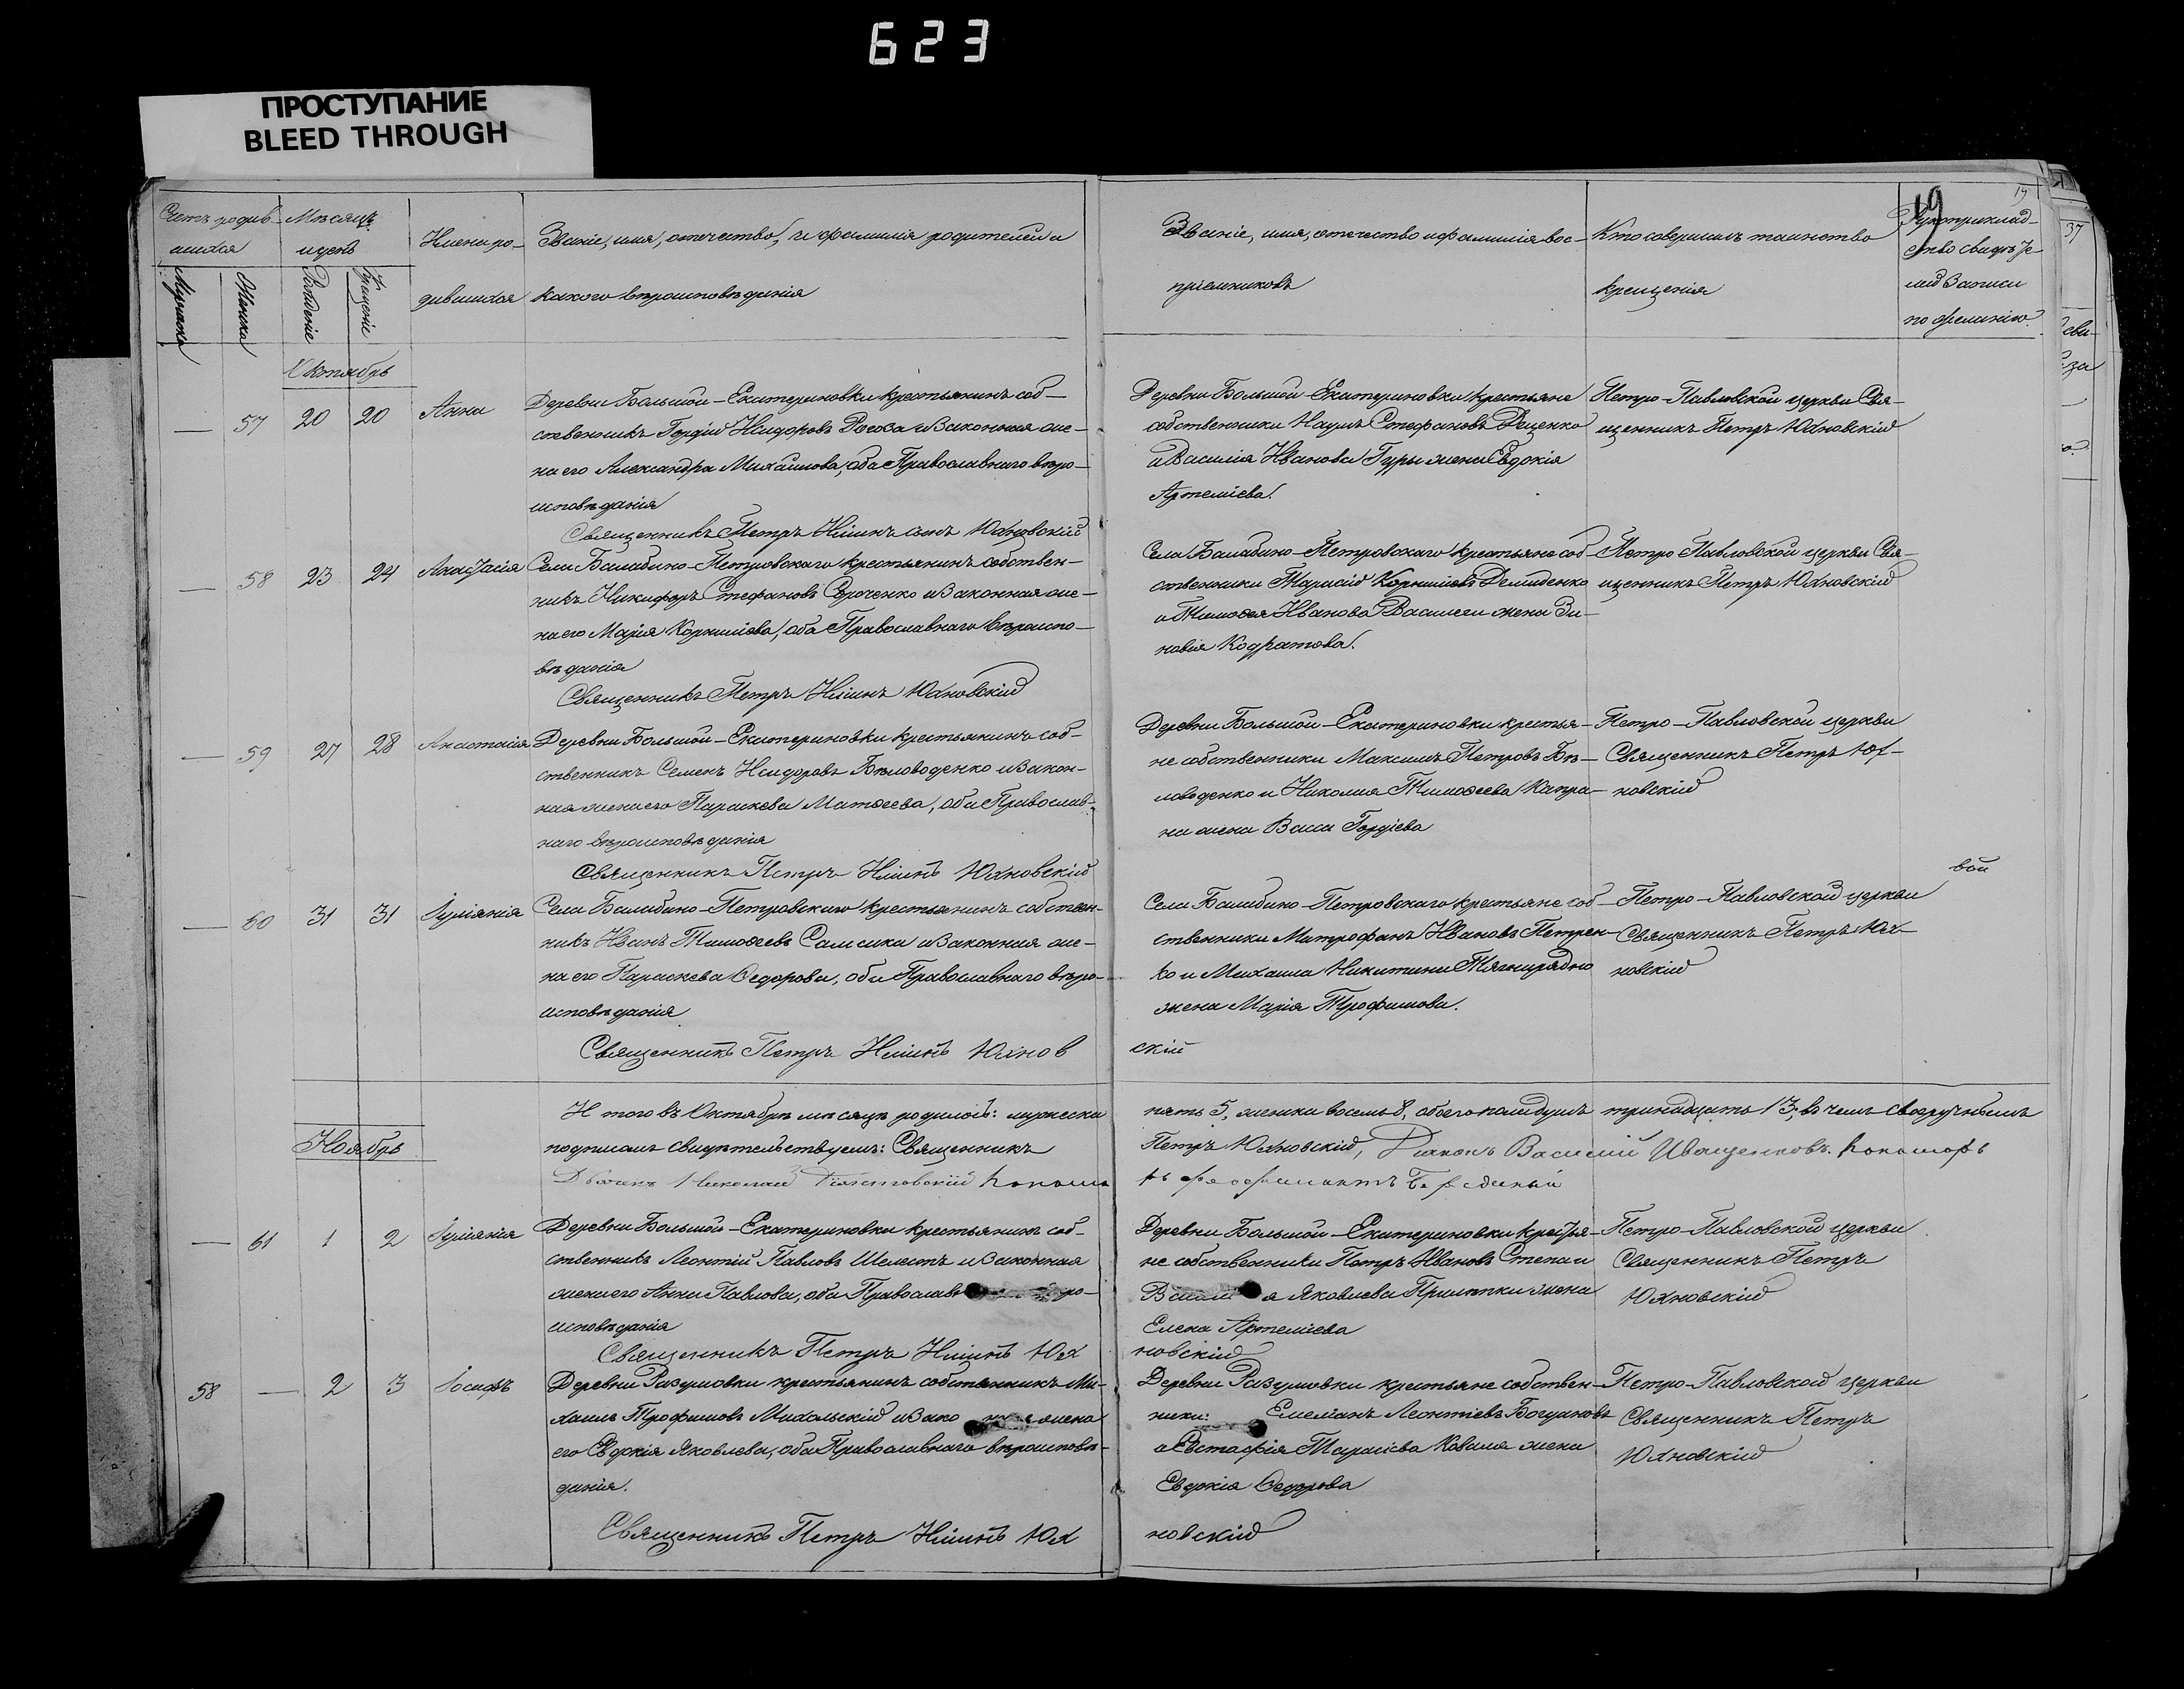 623
ПРОСТУПАНИЕ
BLEED THROUGH
19
Счетъ родив-
шихся
Мужеска
Женска
Мѣсяцъ
и день
Рожденіе
Крещеніе
Имена ро-
дившихся
Званіе, имя, отчество, и фамилія родителей и
какого вѣроисповѣданія
Званіе, имя, отчество и фамилія вос-
пріемниковъ
Кто совершилъ таинство
крещенія
Рукоприклад-
ство свидѣте-
лей записи
по желанію.
37
Октябрь
— 57 20 20 Анна
Деревни Большой-Екатериновки крестьянинъ соб-
ственникъ Гордій Исидоровъ Рогоза и законная же-
на его Александра Михаилова, оба Православнаго вѣро-
исповѣданія
Священникъ Петръ Іоаннъ сынъ Юхновскій
Деревни Большой-Екатериновки крестьяне
собственники Наумъ Стефановъ Доценко
и Василія Иванова Гуры жена Евдокія
Артеміева.
Петро-Павловской церкви Свя-
щенникъ Петръ Юхновскій
— 58 23 24 Анастасія
Села Балабино-Петровскаго крестьянинъ собствен-
никъ Никифоръ Стефановъ Сероченко и законная же-
на его Марія Корнилієва, оба Православнаго вѣроиспо-
вѣданія
Священникъ Петръ Юхновскій
Села Балабино-Петровскаго крестьяне соб-
ственники Тарасій Корниліевъ Демиденко
и Тимоѳея Иванова Василеги жена Зи-
новія Кодратова.
Петро Павловской церкви Свя-
щенникъ Петръ Юхновскій
— 59 27 28 Анастасія
Деревни Большой-Екатериновки крестьянинъ соб-
ственникъ Семенъ Исидоровъ Бѣловоденко и закон-
ная жена его Параскева Матѳеева, оба Православ-
наго вѣроисповѣданія
Священникъ Петръ Юхновскій
Деревни Большой-Екатериновки крестья-
не собственники Максимъ Петровъ Бѣ-
ловоденко и Николая Тимоѳеева Капра-
на жена Васса Гордіева
Петро-Павловской церкви
Священникъ Петръ Юх-
новскій
вой
— 60 31 31 Іуліанія
Села Балабино-Петровскаго крестьянинъ собствен-
никъ Иванъ Тимоѳеевъ Самсика и законная же-
на его Параскева Ѳедорова, оба Православнаго вѣро-
исповѣданія
Священникъ Петръ Юхнов
скій
Села Балабино-Петровскаго крестьяне соб-
ственники Митрофанъ Ивановъ Петрен-
ко и Михаила Никитина Тягнирядно
жена Марія Трофимова.
Петро-Павловской церкви
Священникъ Петръ Юх-
новскій
Итого въ Октябрѣ мѣсяцѣ родилось: мужеска пять 5, женска восемь 8, обоего пола душъ тринадцать 13, въ чемъ своеручнымъ
подписомъ свидѣтельствуемъ: Священникъ Петръ Юхновскій, Діаконъ Василій Иващенковъ. Пономарь
Дьячекъ Николай
Ноябрь
— 61 1 2 Іуліанія
Деревни Большой-Екатериновки крестьянинъ соб-
ственникъ Леонтій Павловъ Шелестъ и законная
жена его Анна Павлова, оба Православ ро-
исповѣданія
Священникъ Петръ Юх
новскій
Деревни Большой-Екатериновки крестья-
не собственники Петръ Ивановъ Степан
я Яковлева Прилипки жена
Елена Артеміева
Петро-Павловской церкви
Священникъ Петръ
Юхновскій
58 — 2 3 Іосифъ
Деревни Разумовки крестьянинъ собственникъ Ми-
хаилъ Трофимовъ Михальскій и зако жена
его Евдокія Яковлева, оба Православнаго вѣроисповѣ-
данія.
Священникъ Петръ Юх
новскій
Деревни Разумовки крестьяне собствен-
ники: Емеліанъ Леонтіевъ Богуновъ
и Евстафія Тарасіева Коваля жена
Евдокія Ѳедорова
Петро-Павловской церкви
Священникъ Петръ
Юхновскій